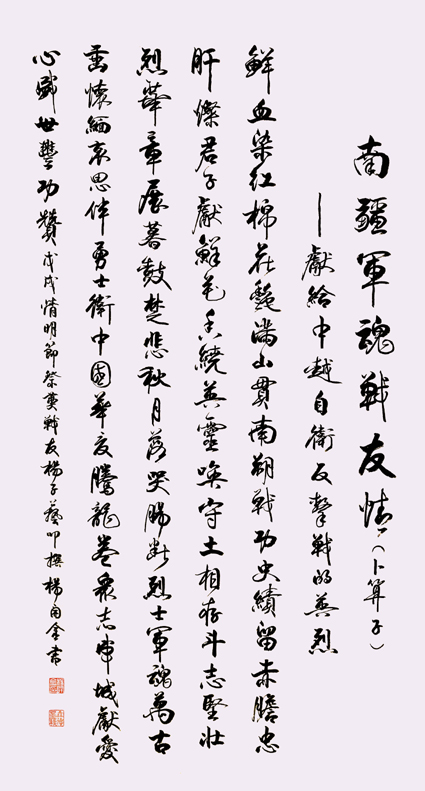 南疆軍魂戰友情(卜算子)
—獻給中越自衛反擊戰的英烈
鮮血染紅棉花豔滿山貫南朔戰功史績留赤膽忠
肝燦君子獻鮮花香繞英靈喚守土相存斗志堅壯
烈華章展暮鼓楚悲秋月落哭腸斷烈士軍魂萬古
垂懷緬哀思伴勇士衛中國華夏騰龍卷眾志成城獻愛
心盛世豐功贊戊戌清明節祭奠戰友楊子藝叩撰楊自金書